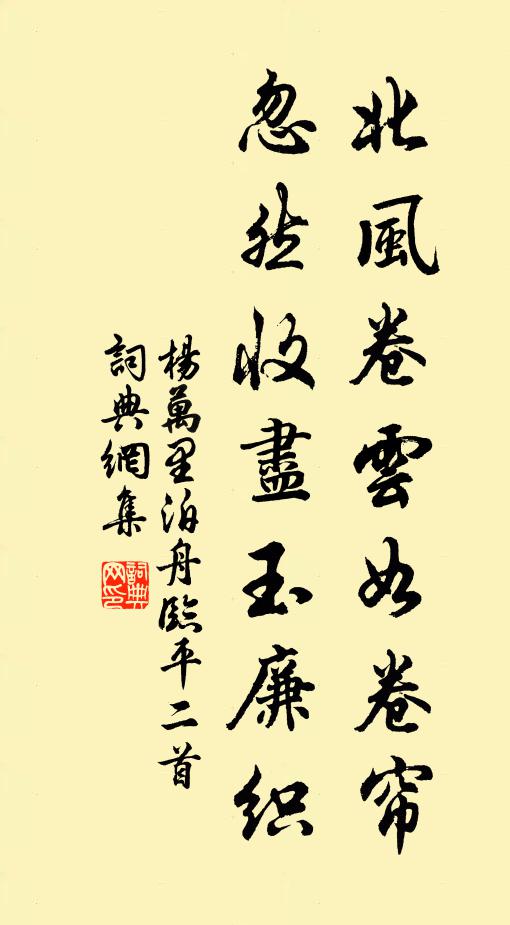 北風卷雲如卷帘
忽然收盡玉廉織
楊萬里泊舟臨平二首
詞典網集
詞典网印